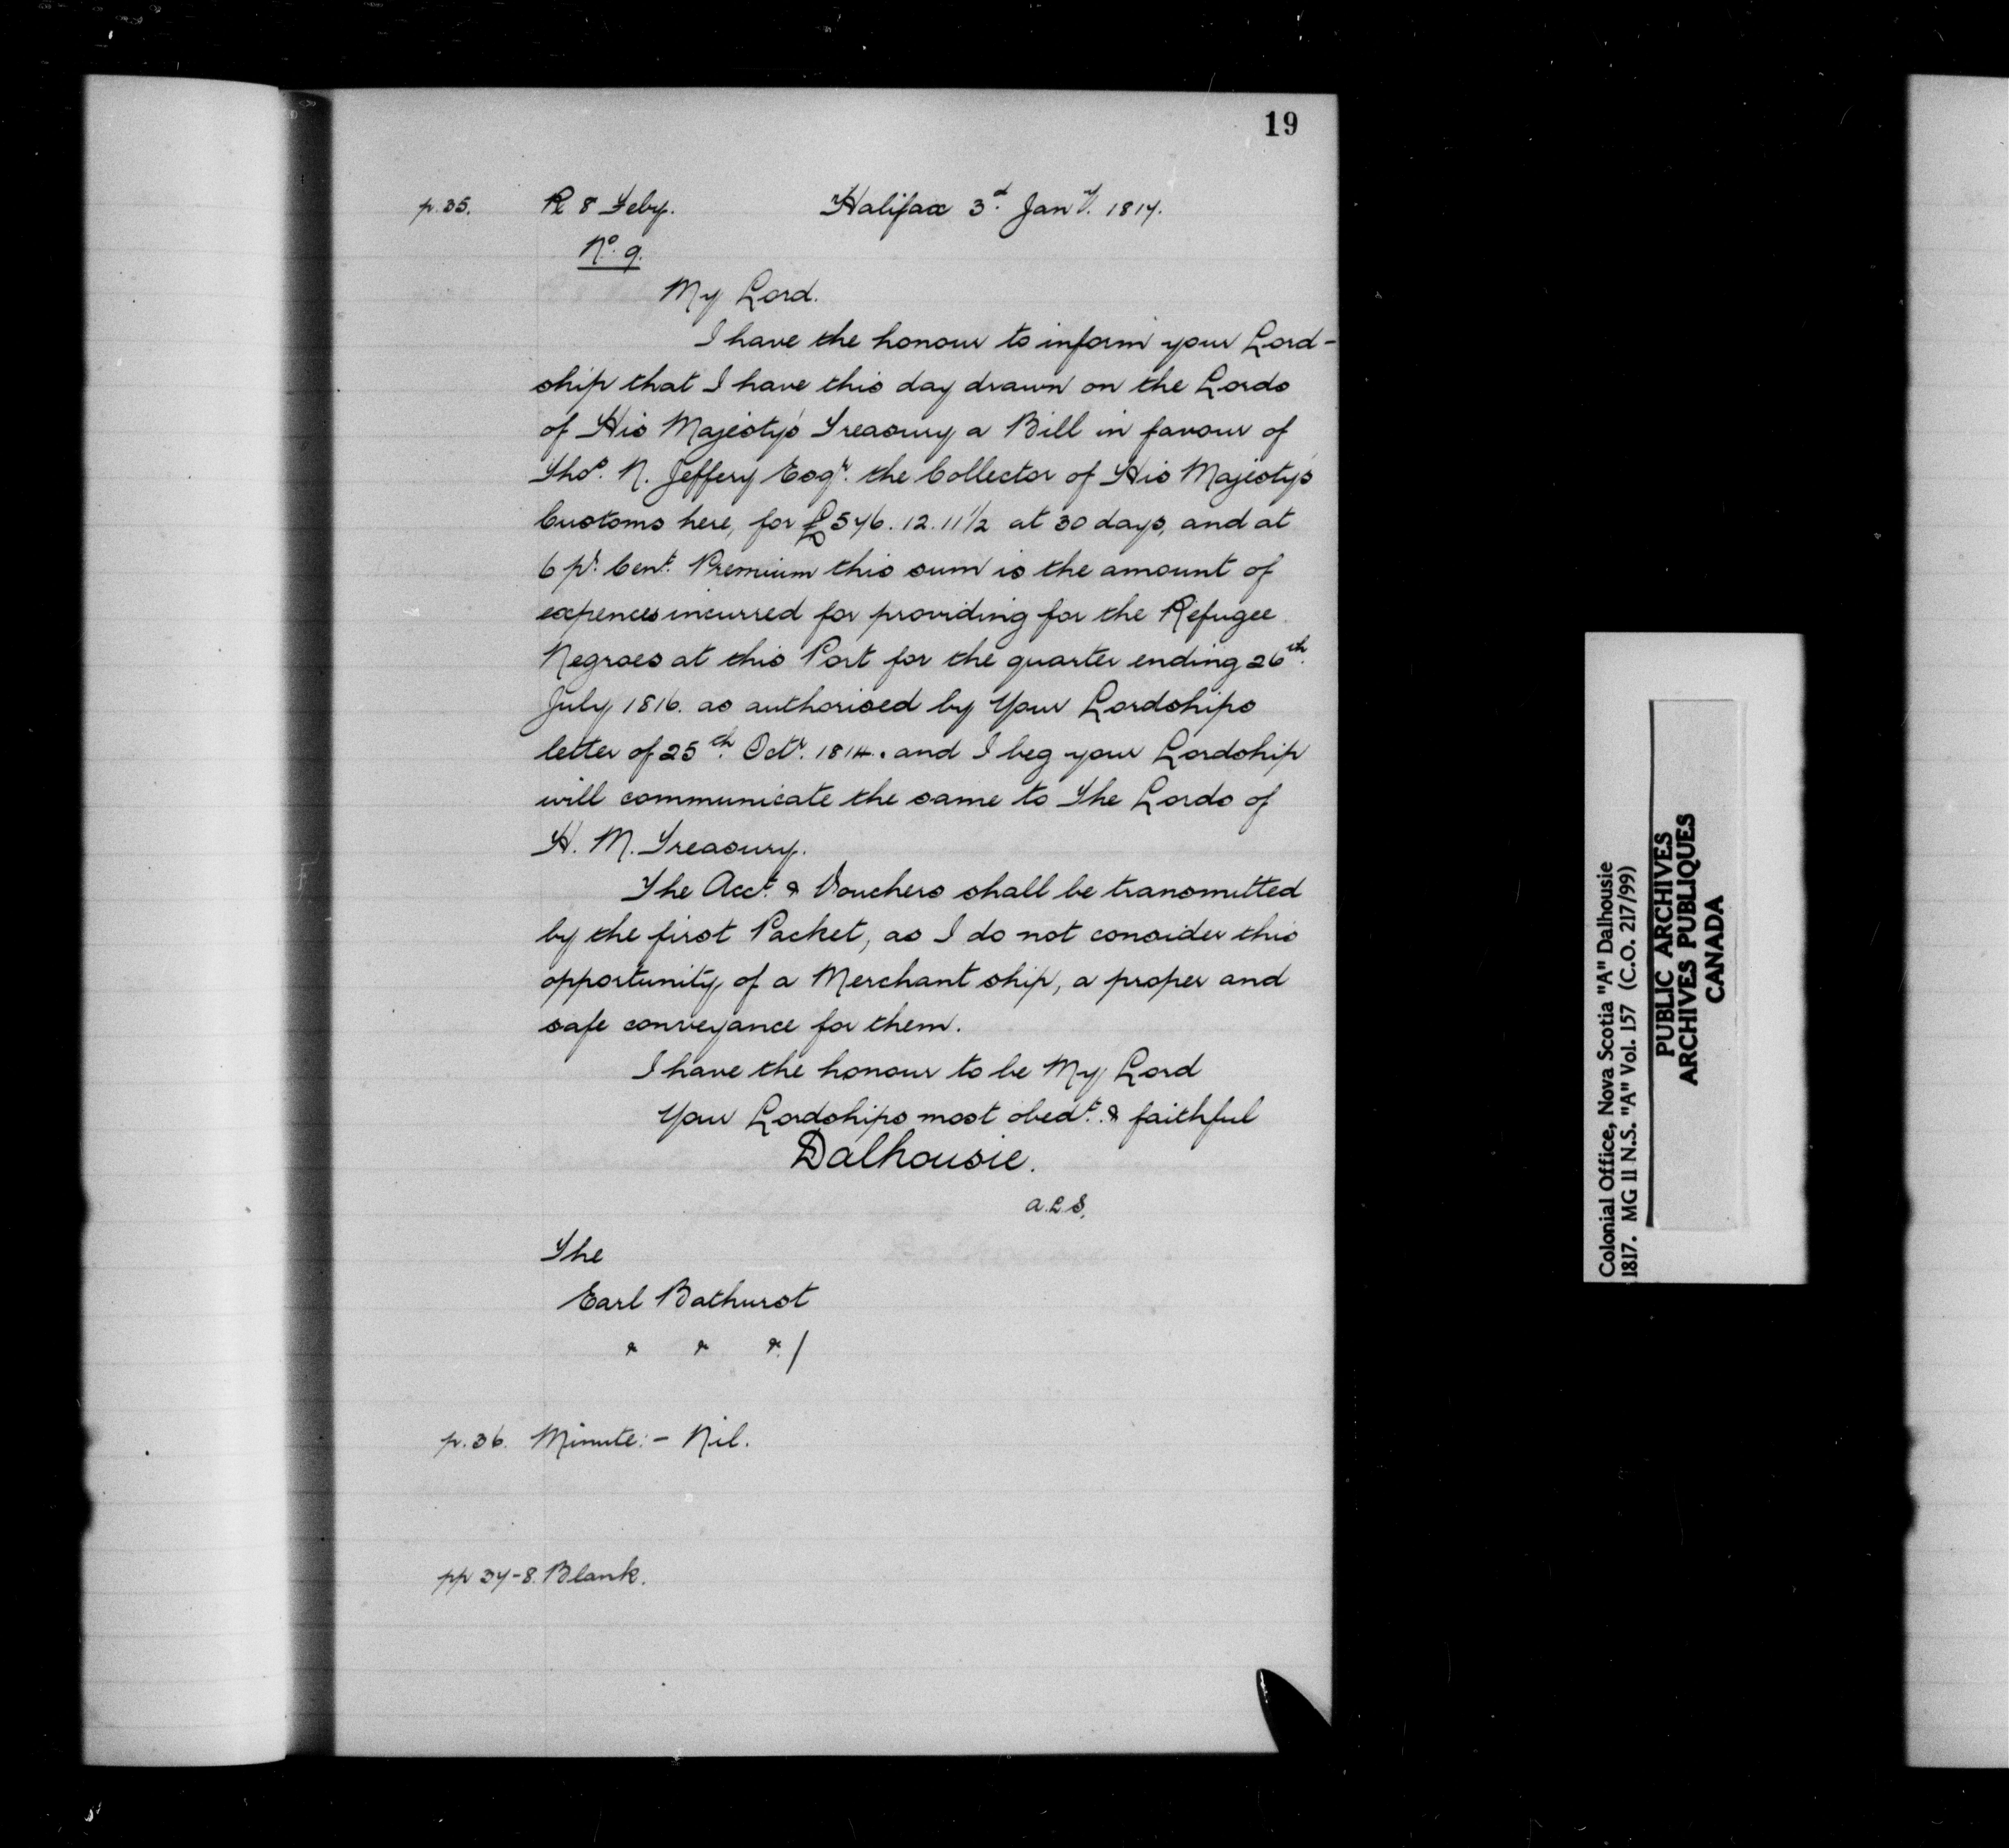 19
p. 35. R 8 Feby. Halifax 3d. Jany. 1817.
No. 9.
My Lord.
I have the honour to inform your Lord-
ship that I have this day drawn on the Lords
of His Majesty's Treasury a Bill in favour of
Thos. N. Jeffery Esqr. the Collector of His Majesty's
Customs here, for £576. 12. 11½ at 30 days, and at
6 pr. Cent. Premium this sum is the amount of
expences incurred for providing for the Refugee
Negroes at this Port for the quarter ending 26th.
July 1816. as authorised by Your Lordships
letter of 25th. Octr. 1814. and I beg your Lordship
will communicate the same to The Lords of
H. M. Treasury.
The Acct. & Vouchers shall be transmitted
by the first Packet, as I do not consider this
opportunity of a Merchant ship, a proper and
safe conveyance for them.
I have the honour to be My Lord
Your Lordships most obedt. & faithful
Dalhousie.
a.L.S.
The
Earl Bathurst
& & &./
p. 36. Minute:- Nil.
pp 37-8. Blank.
Colonial Office, Nova Scotia "A" Dalhousie
1817. MG 11 N.S. "A" Vol. 157 (C.O. 217/99)
PUBLIC ARCHIVES
ARCHIVES PUBLIQUES
CANADA